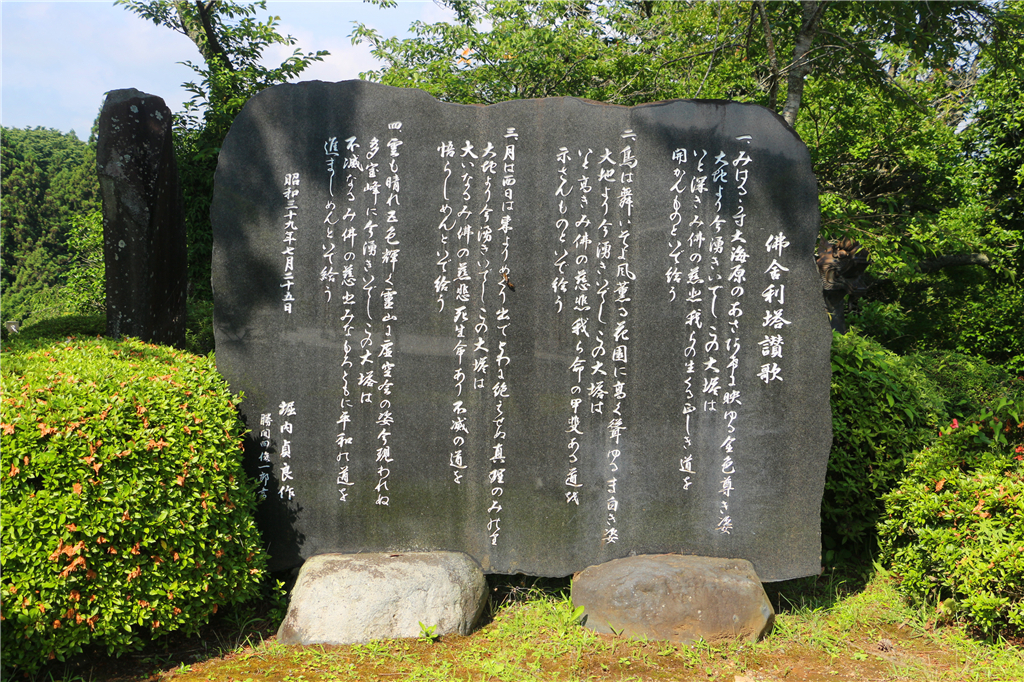 佛舎利塔讃歌
一、みはるかす大海原のあさぼらけに映ゆる金色尊き姿
大地より今湧きいでしこの大塔は
いと深きみ佛の慈悲我らの生くる正しき道
開かんものといで給う
二、鳥は舞いそよ風薫る花園に高く聳ゆる ま白き姿
大地より今湧きいでしこの大塔は
いと高きみ佛の慈悲我ら命の甲斐ある道を
示さんものといで給う
三、月は西日は東よりめぐり出でとわに絶えせぬ真理のみ
大地より今湧きいでしこの大塔は
大いなるみ佛の慈悲死生命あり不滅の道
悟らしめんといで給う
四、雲も晴れ五色輝く霊山に虚空会の姿今現われぬ
多宝峰に今湧きいでしこの大塔は
不滅なるみ佛の慈悲みなもろともに平和の道を
進ましめんといで給う
昭和三十九年七月二十五日
堀内貞良作